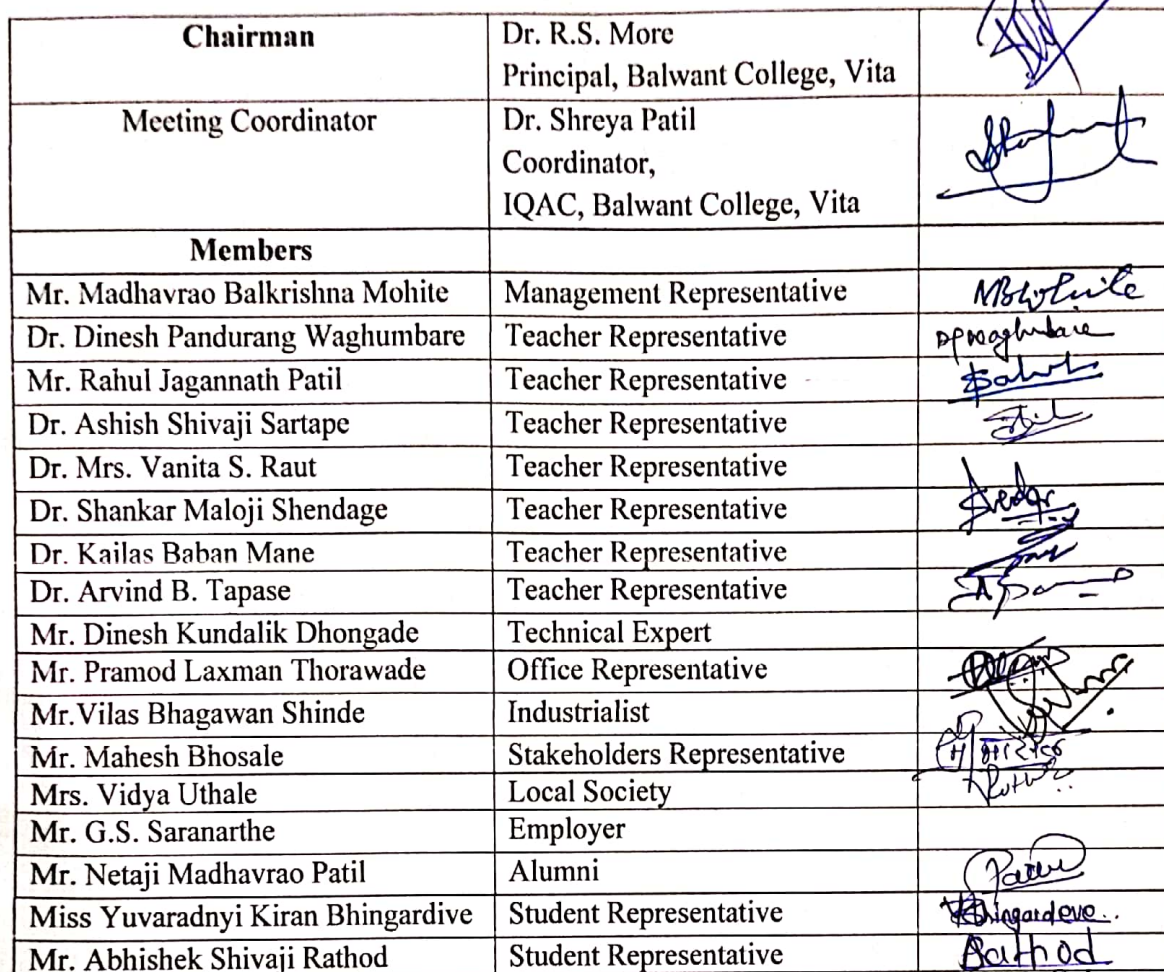 Chairman Dr. R.S. More
Principal, Balwant College, Vita
Meeting Coordinator Dr. Shreya Patil
Coordinator,
IQAC, Balwant College, Vita
Members
Mr. Madhavrao Balkrishna Mohite Management Representative
Dr. Dinesh Pandurang Waghumbare Teacher Representative
Mr. Rahul Jagannath Patil Teacher Representative
Dr. Ashish Shivaji Sartape Teacher Representative
Dr. Mrs. Vanita S. Raut Teacher Representative
Dr. Shankar Maloji Shendage Teacher Representative
Dr. Kailas Baban Mane Teacher Representative
Dr. Arvind B. Tapase Teacher Representative
Mr. Dinesh Kundalik Dhongade Technical Expert
Mr. Pramod Laxman Thorawade Office Representative
Mr.Vilas Bhagawan Shinde Industrialist
Mr. Mahesh Bhosale Stakeholders Representative
Mrs. Vidya Uthale Local Society
Mr. G.S. Saranarthe Employer
Mr. Netaji Madhavrao Patil Alumni
Miss Yuvaradnyi Kiran Bhingardive Student Representative
Mr. Abhishek Shivaji Rathod Student Representative